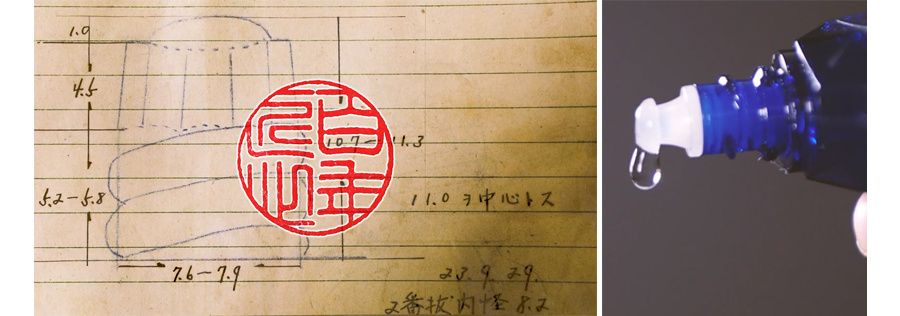 1.0
4.5
10.7-11.3
5.2-5.8
11.0ヲ中心トス
7.6-7.9
23.9.29.
2番抜内怪8.2